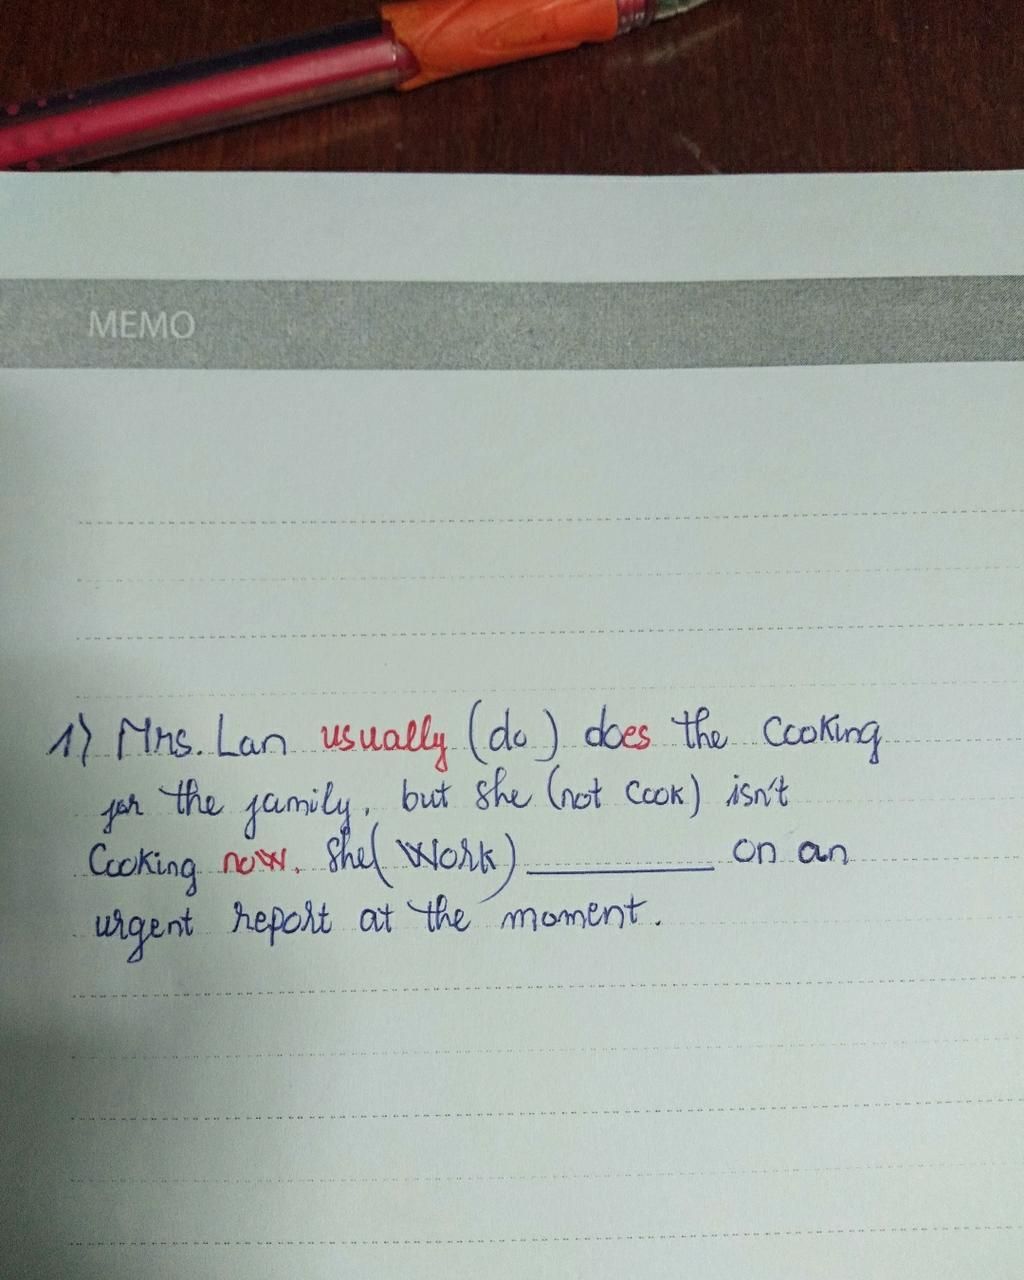 MEMO
1) Mrs. Lan usually (do) does the cooking
for the family, but she (not cook) isn't
cooking now. She( work) __________ on an
urgent report at the moment.